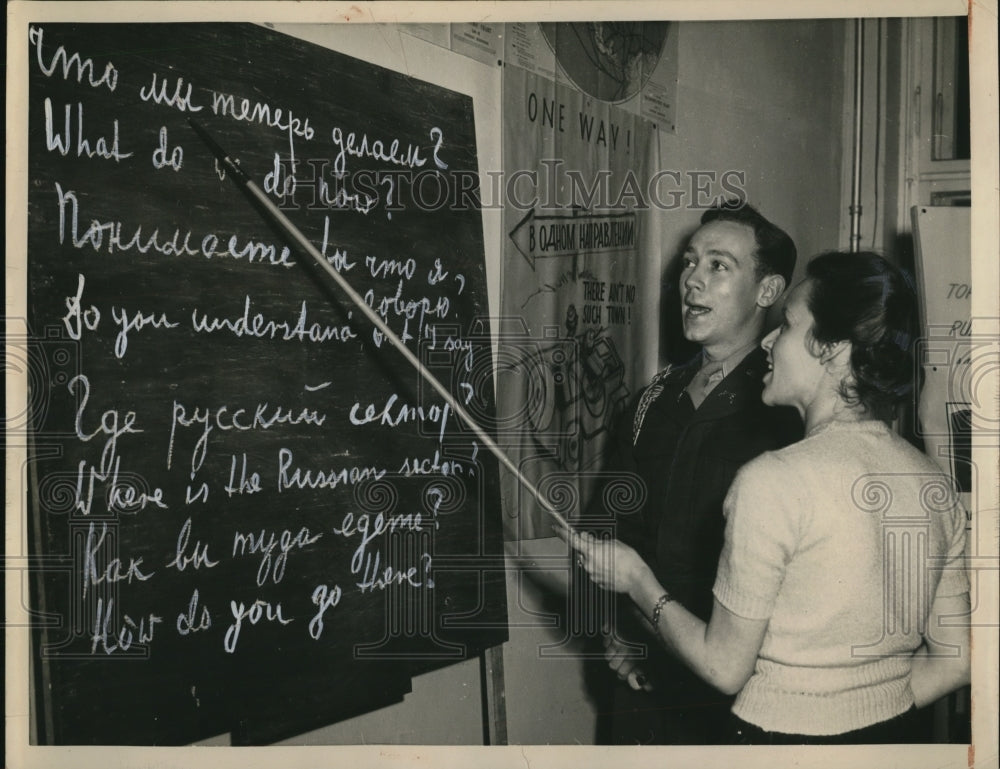 Что мы теперь делаем?
What do we do now?
Понимаете вы что я
говорю?
Do you understand what I say?
Где русский сектор?
Where is the Russian sector?
Как вы туда едете?
How do you go there?
ONE WAY!
В ОДНОМ НАПРАВЛЕНИИ
THERE AIN'T NO
SUCH TWN!
HISTORIC IMAGES